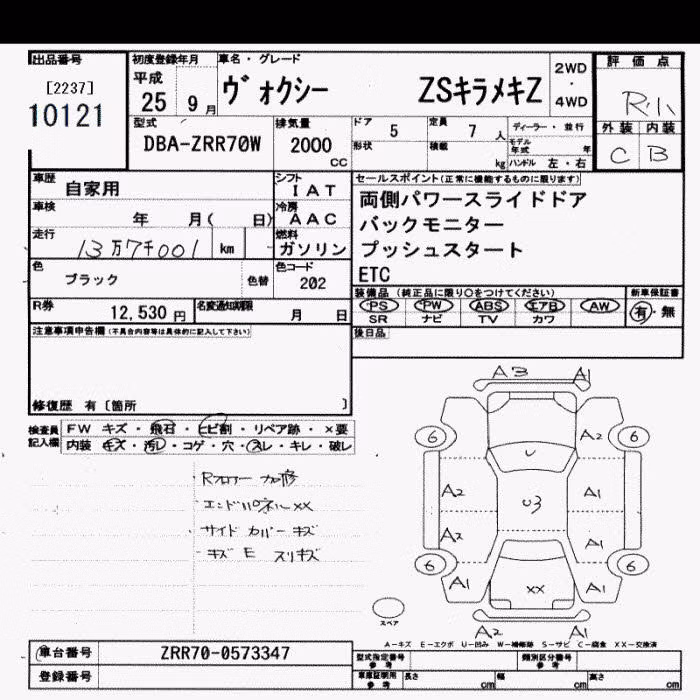 出品番号
[2237]
10121
初度登録年月
平成
25 9 月
車名・グレード
ヴォクシー ZSキラメキZ
2WD
・
4WD
評価点
R小
外装 内装
C B
型式
DBA-ZRR70W
排気量
2000
CC
ドア 5
形状
定員 7 人
積載 kg
ディーラー・並行
モデル年式 年
ハンドル 左・右
車歴
自家用
シフト
IAT
車検
年 月( 日)
冷房
AAC
走行
13万7千001 km
燃料
ガソリン
セールスポイント(正常に機能するものに限ります)
両側パワースライドドア
バックモニター
プッシュスタート
ETC
色
ブラック
色替
色コード
202
R券
12,530 円
名変通知期限
月 日
装備品(純正品に限り○をつけてください)
PS PW ABS エアB AW
SR ナビ TV カワ
新車保証書
有・無
後日品
注意事項申告欄(不具合内容等は具体的に記入して下さい)
修復歴 有〔箇所 〕
検査員
記入欄
FW キズ・飛石・ヒビ割・リペア跡・×要
内装 キズ・汚レ・コゲ・穴・スレ・キレ・破レ
Rフロアー 加修
エンドパネル××
サイドカバー キズ
キズ E スリキズ
A3 A1
6 6
A2
U
A2 U3 A1
A2 A1
6 6
A1 XX A1
A2 A1
スペア
A-キズ E-エクボ U-凹み W-補修跡 S-サビ C-腐食 XX-交換済
車台番号
ZRR70-0573347
登録番号
型式指定番号
参考
類別区分番号
参考
車庫証明用
参考
長さ cm
幅 cm
高さ cm